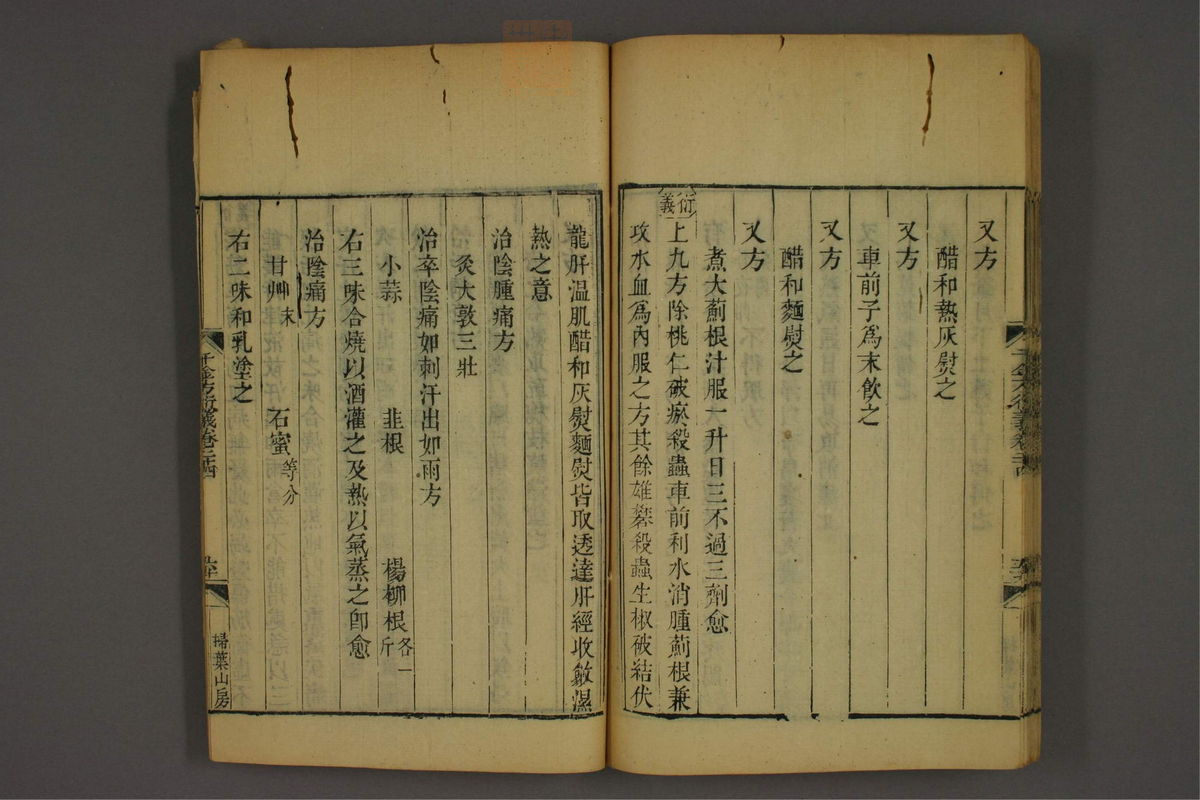 又方
醋和熱灰熨之
又方
車前子爲末飲之
又方
醋和麵熨之
又方
煮大薊根汁服一升日三不過三劑愈
衍義
上九方除桃仁破瘀殺蟲車前利水消腫薊根兼
攻水血爲內服之方其餘雄礬殺蟲生椒破結伏
龍肝溫肌醋和灰熨麵熨皆取透達肝經收斂濕
熱之意
治陰腫痛方
灸大敦三壯
治卒陰痛如刺汗出如雨方
小蒜 韭根 楊柳根各一斤
右三味合燒以酒灌之及熱以氣蒸之卽愈
治陰痛方
甘艸末 石蜜等分
右二味和乳塗之
千金方衍義卷二十四
掃葉山房